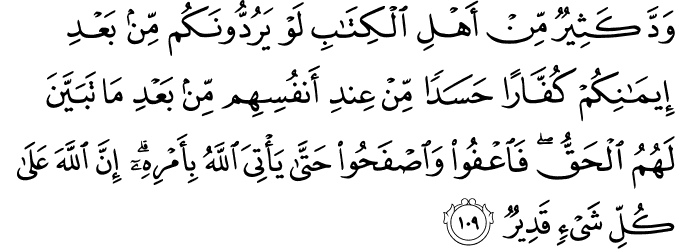 وَدَّ كَثِيرٌ مِّنْ أَهْلِ الْكِتَٰبِ لَوْ يَرُدُّونَكُم مِّنۢ بَعْدِ
إِيمَٰنِكُمْ كُفَّارًا حَسَدًا مِّنْ عِندِ أَنفُسِهِم مِّنۢ بَعْدِ مَا تَبَيَّنَ
لَهُمُ الْحَقُّ ۖ فَاعْفُوا۟ وَاصْفَحُوا۟ حَتَّىٰ يَأْتِىَ اللَّهُ بِأَمْرِهِۦٓ ۗ إِنَّ اللَّهَ عَلَىٰ
كُلِّ شَىْءٍ قَدِيرٌ ۝١٠٩